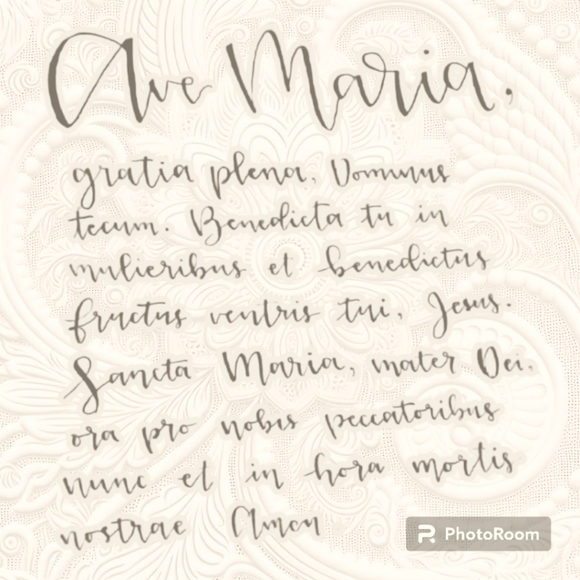 Ave Maria,
gratia plena, Dominus
tecum. Benedicta tu in
mulieribus et benedictus
fructus ventris tui, Jesus.
Sancta Maria, mater Dei,
ora pro nobis peccatoribus
nunc et in hora mortis
nostrae Amen
PhotoRoom